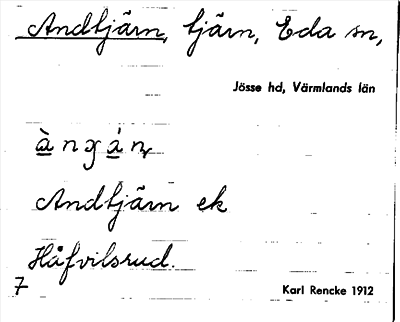 Andtjärn, tjärn, Eda sn,
Jösse hd, Värmlands län
Andtjärn ek
Håfvilsrud.
7
Karl Rencke 1912